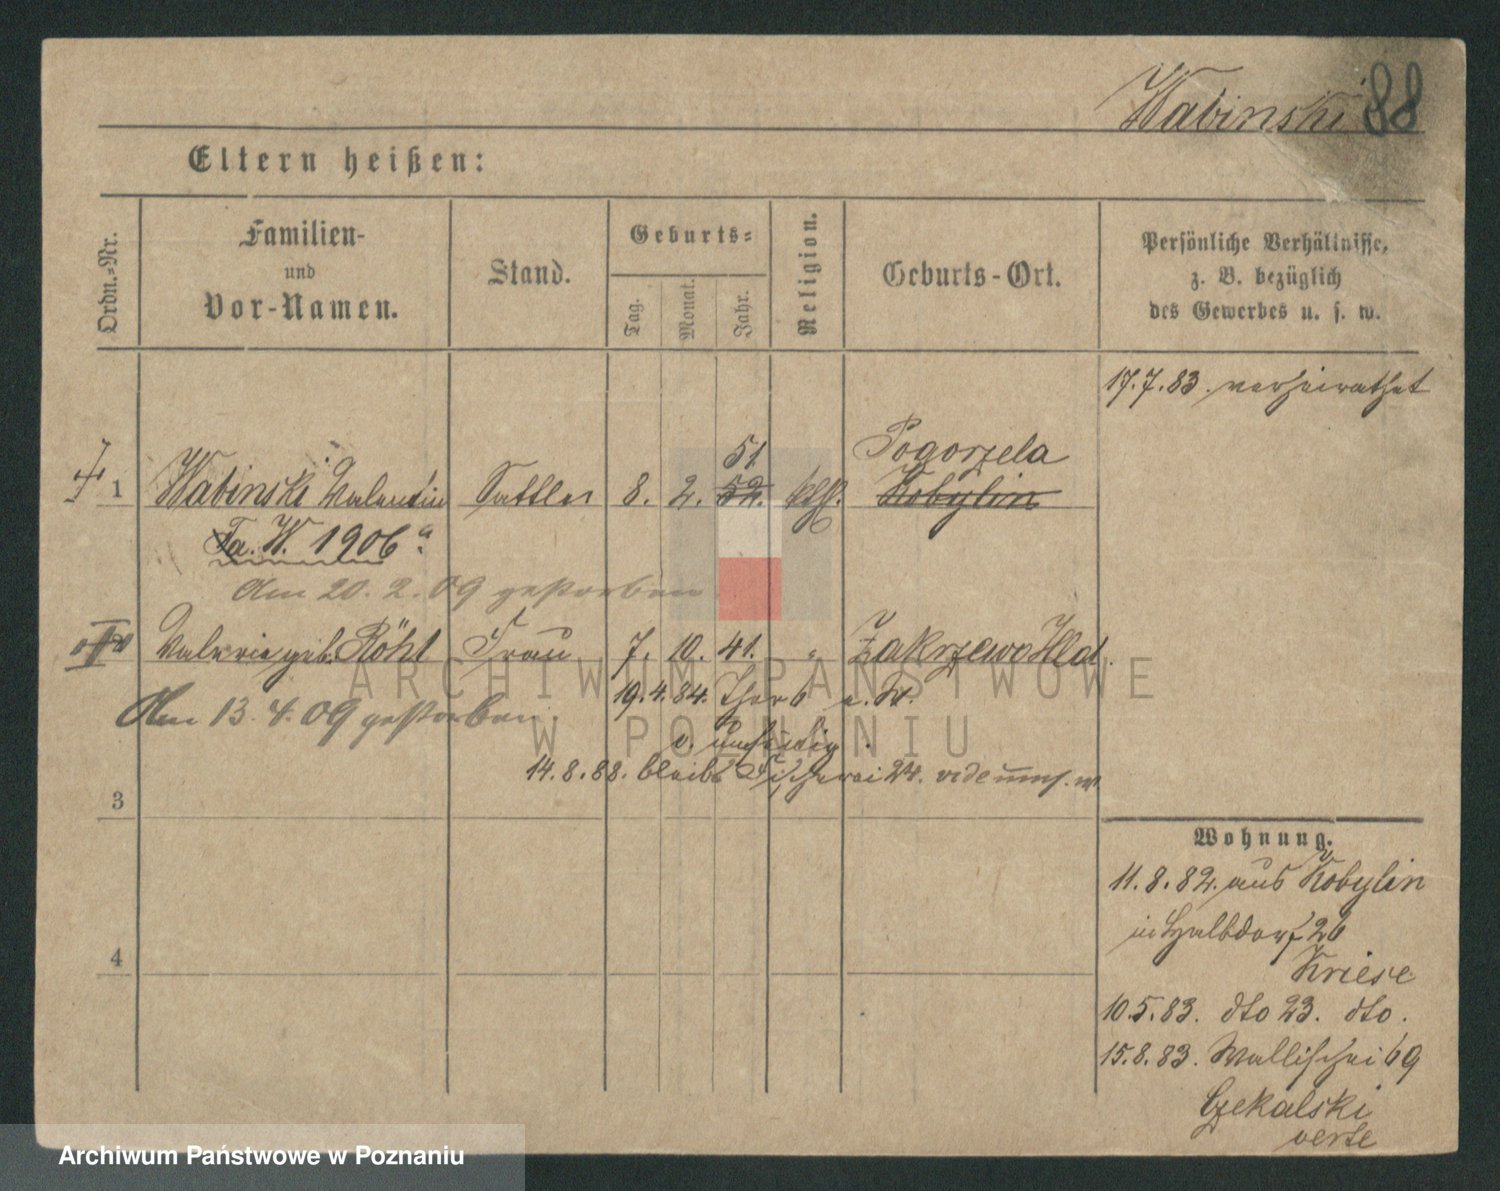 Wabinski 88
Eltern heißen:
Ordn.-Nr.
Familien-
und
Vor-Namen.
Stand.
Geburts-
Tag.
Monat.
Jahr.
Religion.
Geburts-Ort.
Persönliche Verhältnisse,
z. B. bezüglich
des Gewerbes u. s. w.
17.7.83. verheirathet
51. Pogorzela
1 Wabinski Valentin Sattler 8. 2. 52. kth. Kobylin
Fa. W. 1906
Am 20. 2. 09 gestorben
Valerie geb. Röhl Frau 7. 10. 41. " Zakrzewo Hld.
19.4.84.
Am 13. 4. 09 gestorben
14.8.88. bleibt Fischerei 24. vide
3
Wohnung.
11.8.82. aus Kobylin
in Halbdorf 26
4
Kriese
10.5.83. dto 23. dto.
15.8.83. Wallischei 69
Czekalski
verte
ARCHIWUM PAŃSTWOWE
W POZNANIU
Archiwum Państwowe w Poznaniu